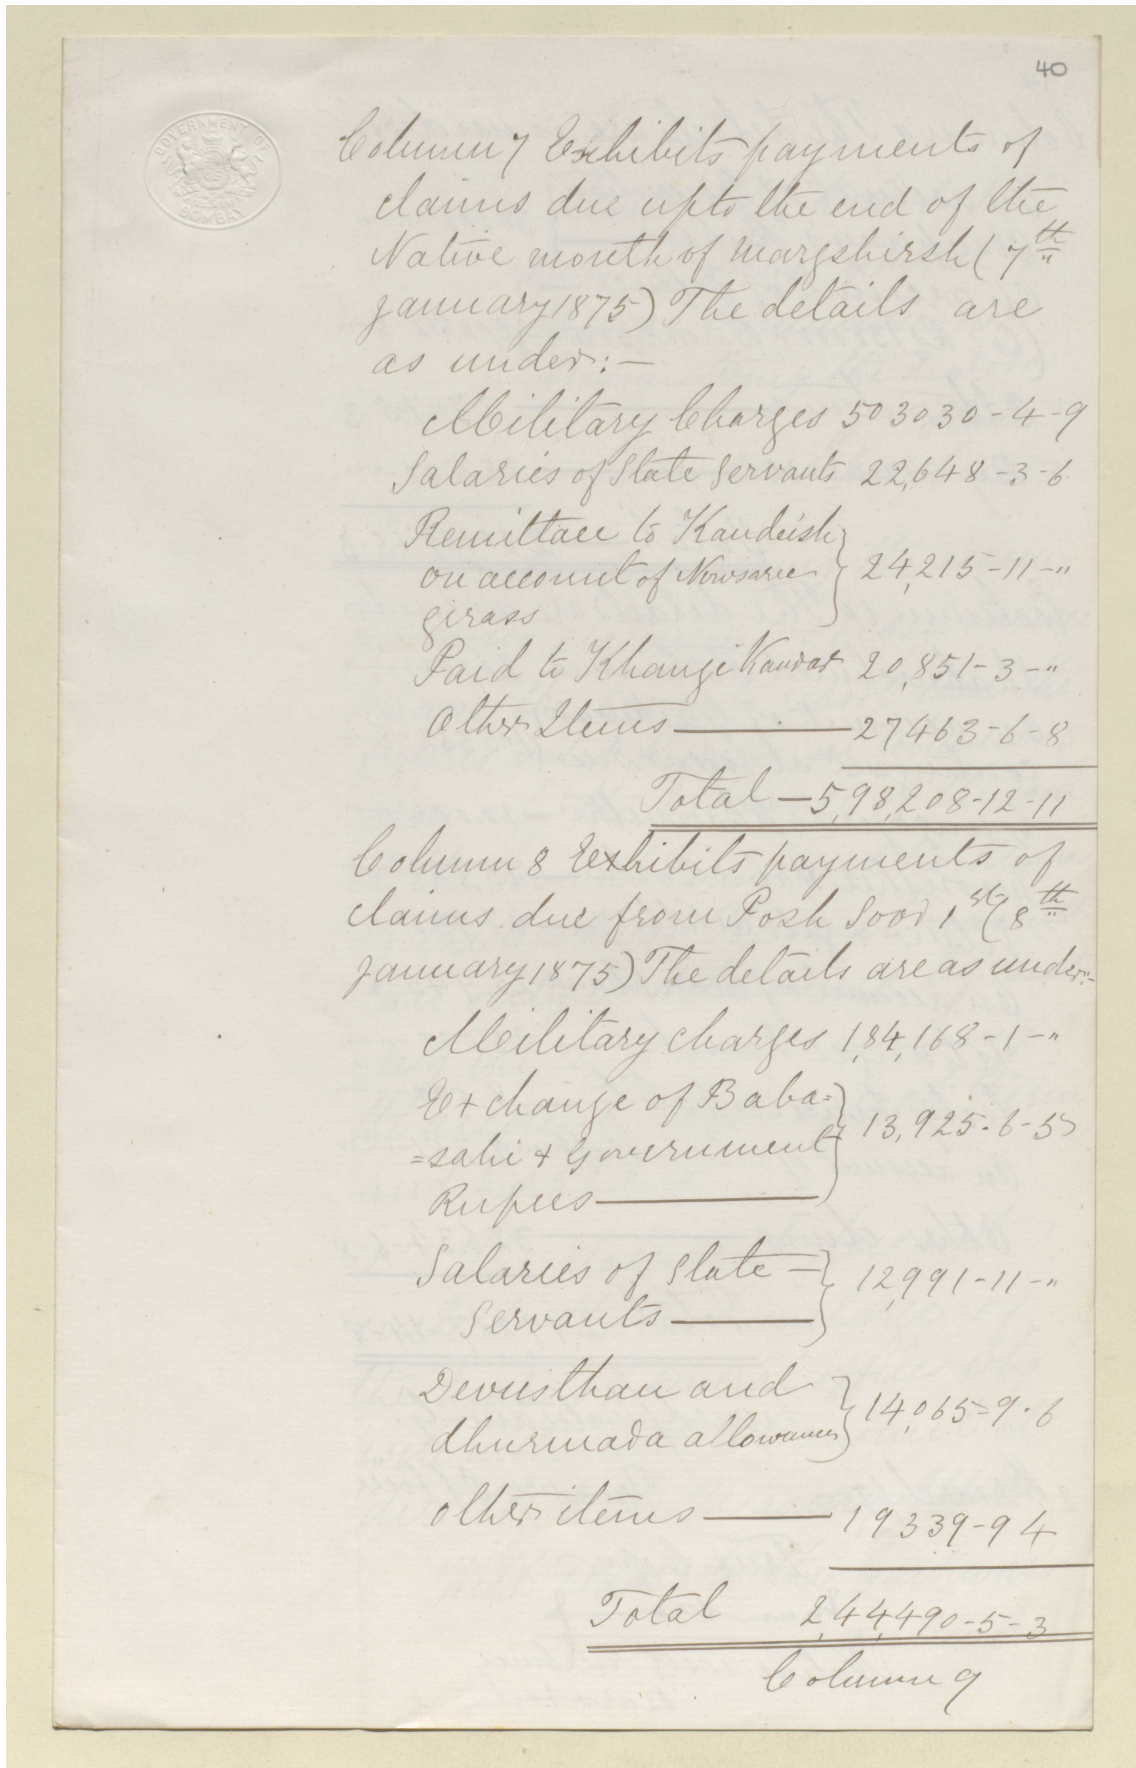 40
GOVERNMENT OF
BOMBAY
Column 7 Exhibits payments of
claims due upto the end of the
Native month of Margshirsh (7th
January 1875) The details are
as under:—
Military Charges 503030-4-9
Salaries of State Servants 22,648-3-6
Remittace to Kandeish
on account of Nowsaree } 24,215-11-"
girass
Paid to Khangi Kamdar 20,851-3-"
Other Items — 27463-6-8
Total — 5,98,208-12-11
Column 8 Exhibits payments of
claims due from Posh Sood 1st (8th
January 1875) The details are as under:-
Military charges 1,84,168-1-"
Exchange of Baba=
=sahi & Government } 13,925-6-5
Rupees —
Salaries of State — } 12,991-11-"
Servants —
Devusthan and } 14,065-9-6
dhurmada allowances
other items — 19339-9 4
Total 2,44,490-5-3
Column 9